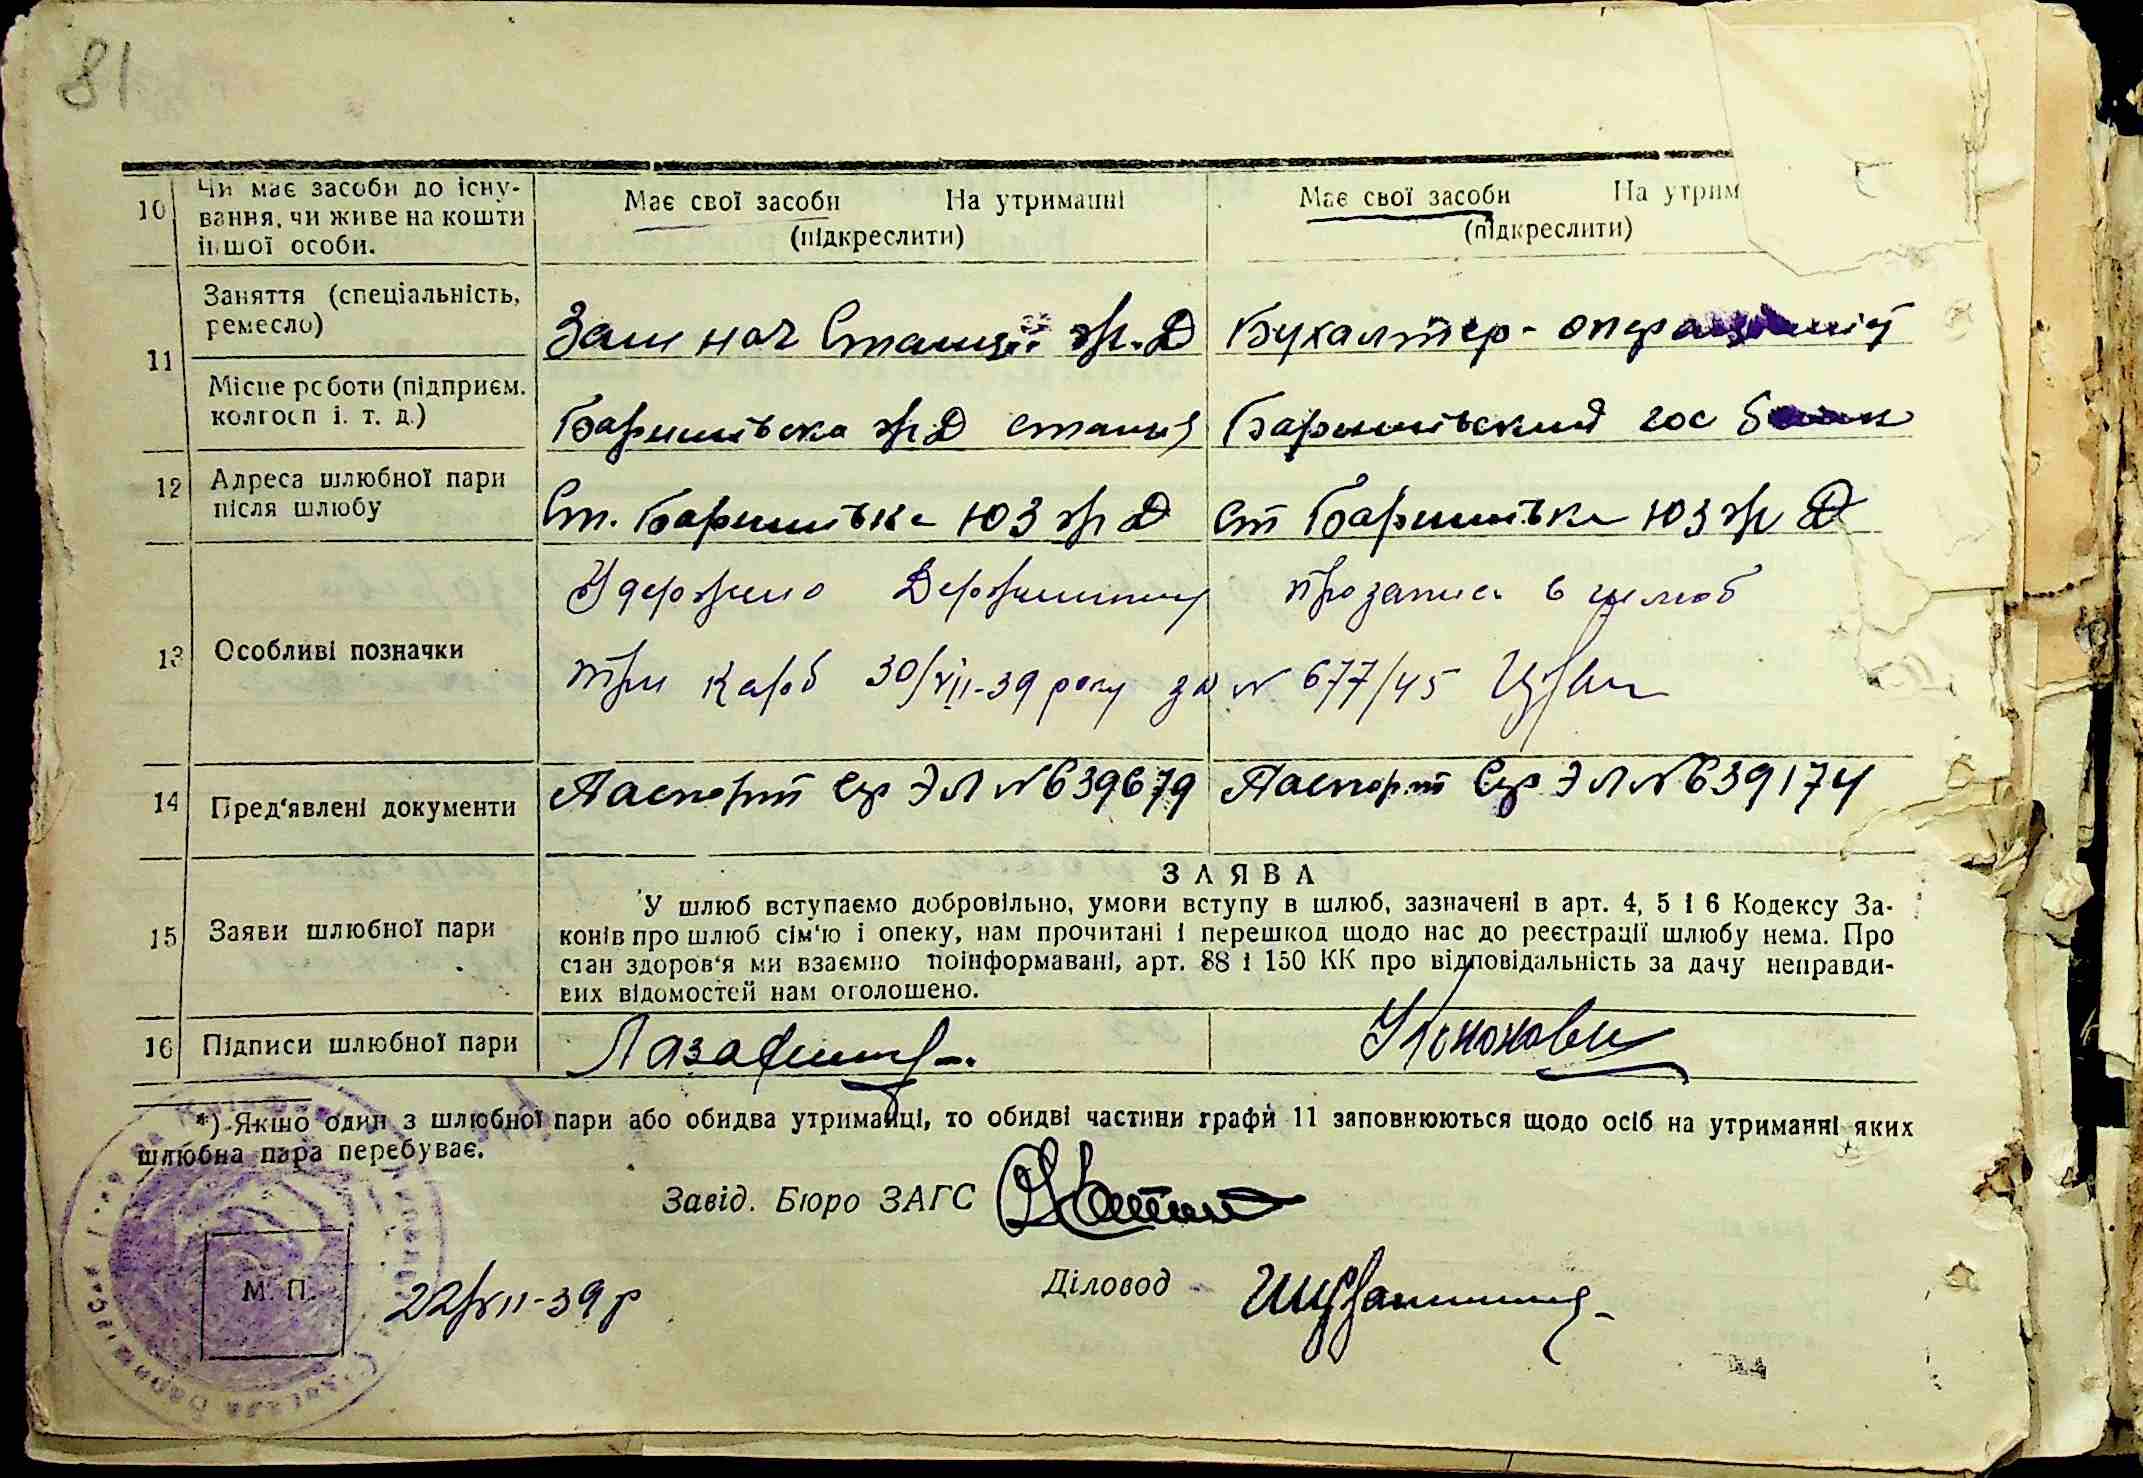 81
10 Чи має засоби до існу-
вання, чи живе на кошти
іншої особи.
Має свої засоби На утриманні
(підкреслити)
Має свої засоби На утрим
(підкреслити)
11 Заняття (спеціальність,
ремесло)
Зам нач Станції ж.Д
Бухалтер-операціоніст
Місце роботи (підприєм.
колгосп і. т. д.)
Баришівска жД станція
Баришівский гос банк
12 Адреса шлюбної пари
після шлюбу
Ст. Баришівка ЮЗ ж Д
ст Баришівка ЮЗ ж Д
13 Особливі позначки
Удержано Держмито за запис в шлюб
три карб 30/VII-39 року за № 677/45
14 Пред'явлені документи
Паспорт Сер ЭЛ № 639679
Паспорт Сер ЭЛ № 639174
15 Заяви шлюбної пари
ЗАЯВА
У шлюб вступаємо добровільно, умови вступу в шлюб, зазначені в арт. 4, 5 і 6 Кодексу За-
конів про шлюб сім'ю і опеку, нам прочитані і перешкод щодо нас до реєстрації шлюбу нема. Про
стан здоров'я ми взаємно поінформавані, арт. 88 і 150 КК про відповідальність за дачу неправди-
вих відомостей нам оголошено.
16 Підписи шлюбної пари
*) Якщо один з шлюбної пари або обидва утриманці, то обидві частини графи 11 заповнюються щодо осіб на утриманні яких
шлюбна пара перебуває.
Завід. Бюро ЗАГС
М. П.
22/VII-39 р
Діловод